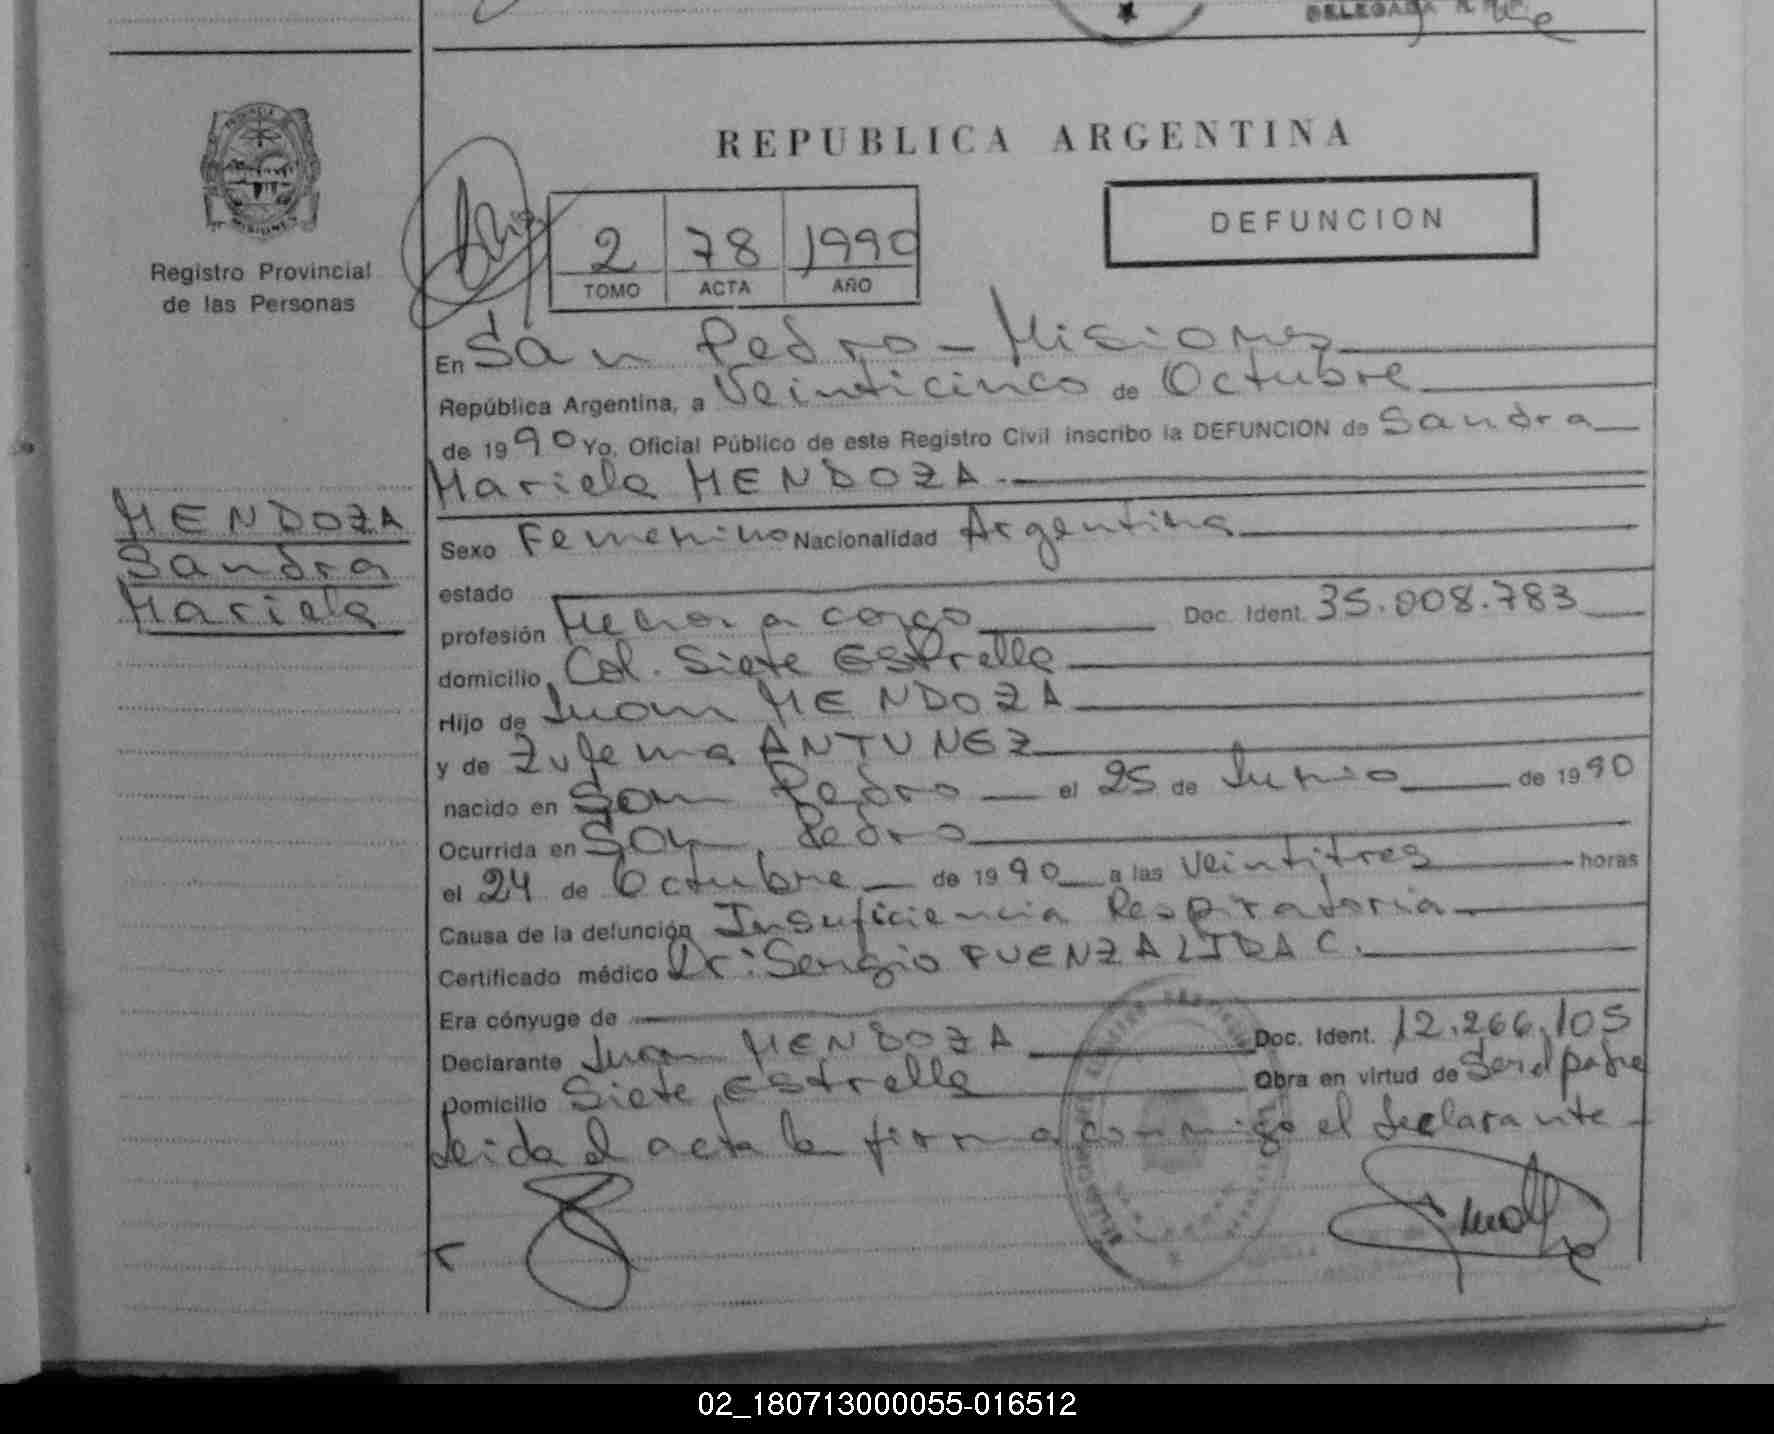 REPUBLICA ARGENTINA
DEFUNCION
2 78 1990
TOMO ACTA AÑO
Registro Provincial
de las Personas
MENDOZA
Sandra
Mariela
En San Pedro - Misiones
República Argentina, a Veinticinco de Octubre
de 1990 Yo, Oficial Público de este Registro Civil inscribo la DEFUNCION de Sandra
Mariela MENDOZA.-
Sexo Femenino Nacionalidad Argentina
estado
profesión Menor a cargo Doc. Ident. 35.008.783
domicilio Col. Siete Estrella
Hijo de Juan MENDOZA
y de Zulema ANTUNEZ
nacido en San Pedro el 25 de Junio de 1990
Ocurrida en San Pedro
el 24 de Octubre de 1990 a las Veintitres horas
Causa de la defunción Insuficiencia Respiratoria
Certificado médico Dr: Sergio FUENZALIDA C.
Era cónyuge de
Declarante Juan MENDOZA Doc. Ident. 12.266.105
Domicilio Siete Estrella Obra en virtud de Ser el padre
Leida el acta la firma conmigo el declarante
02_180713000055-016512